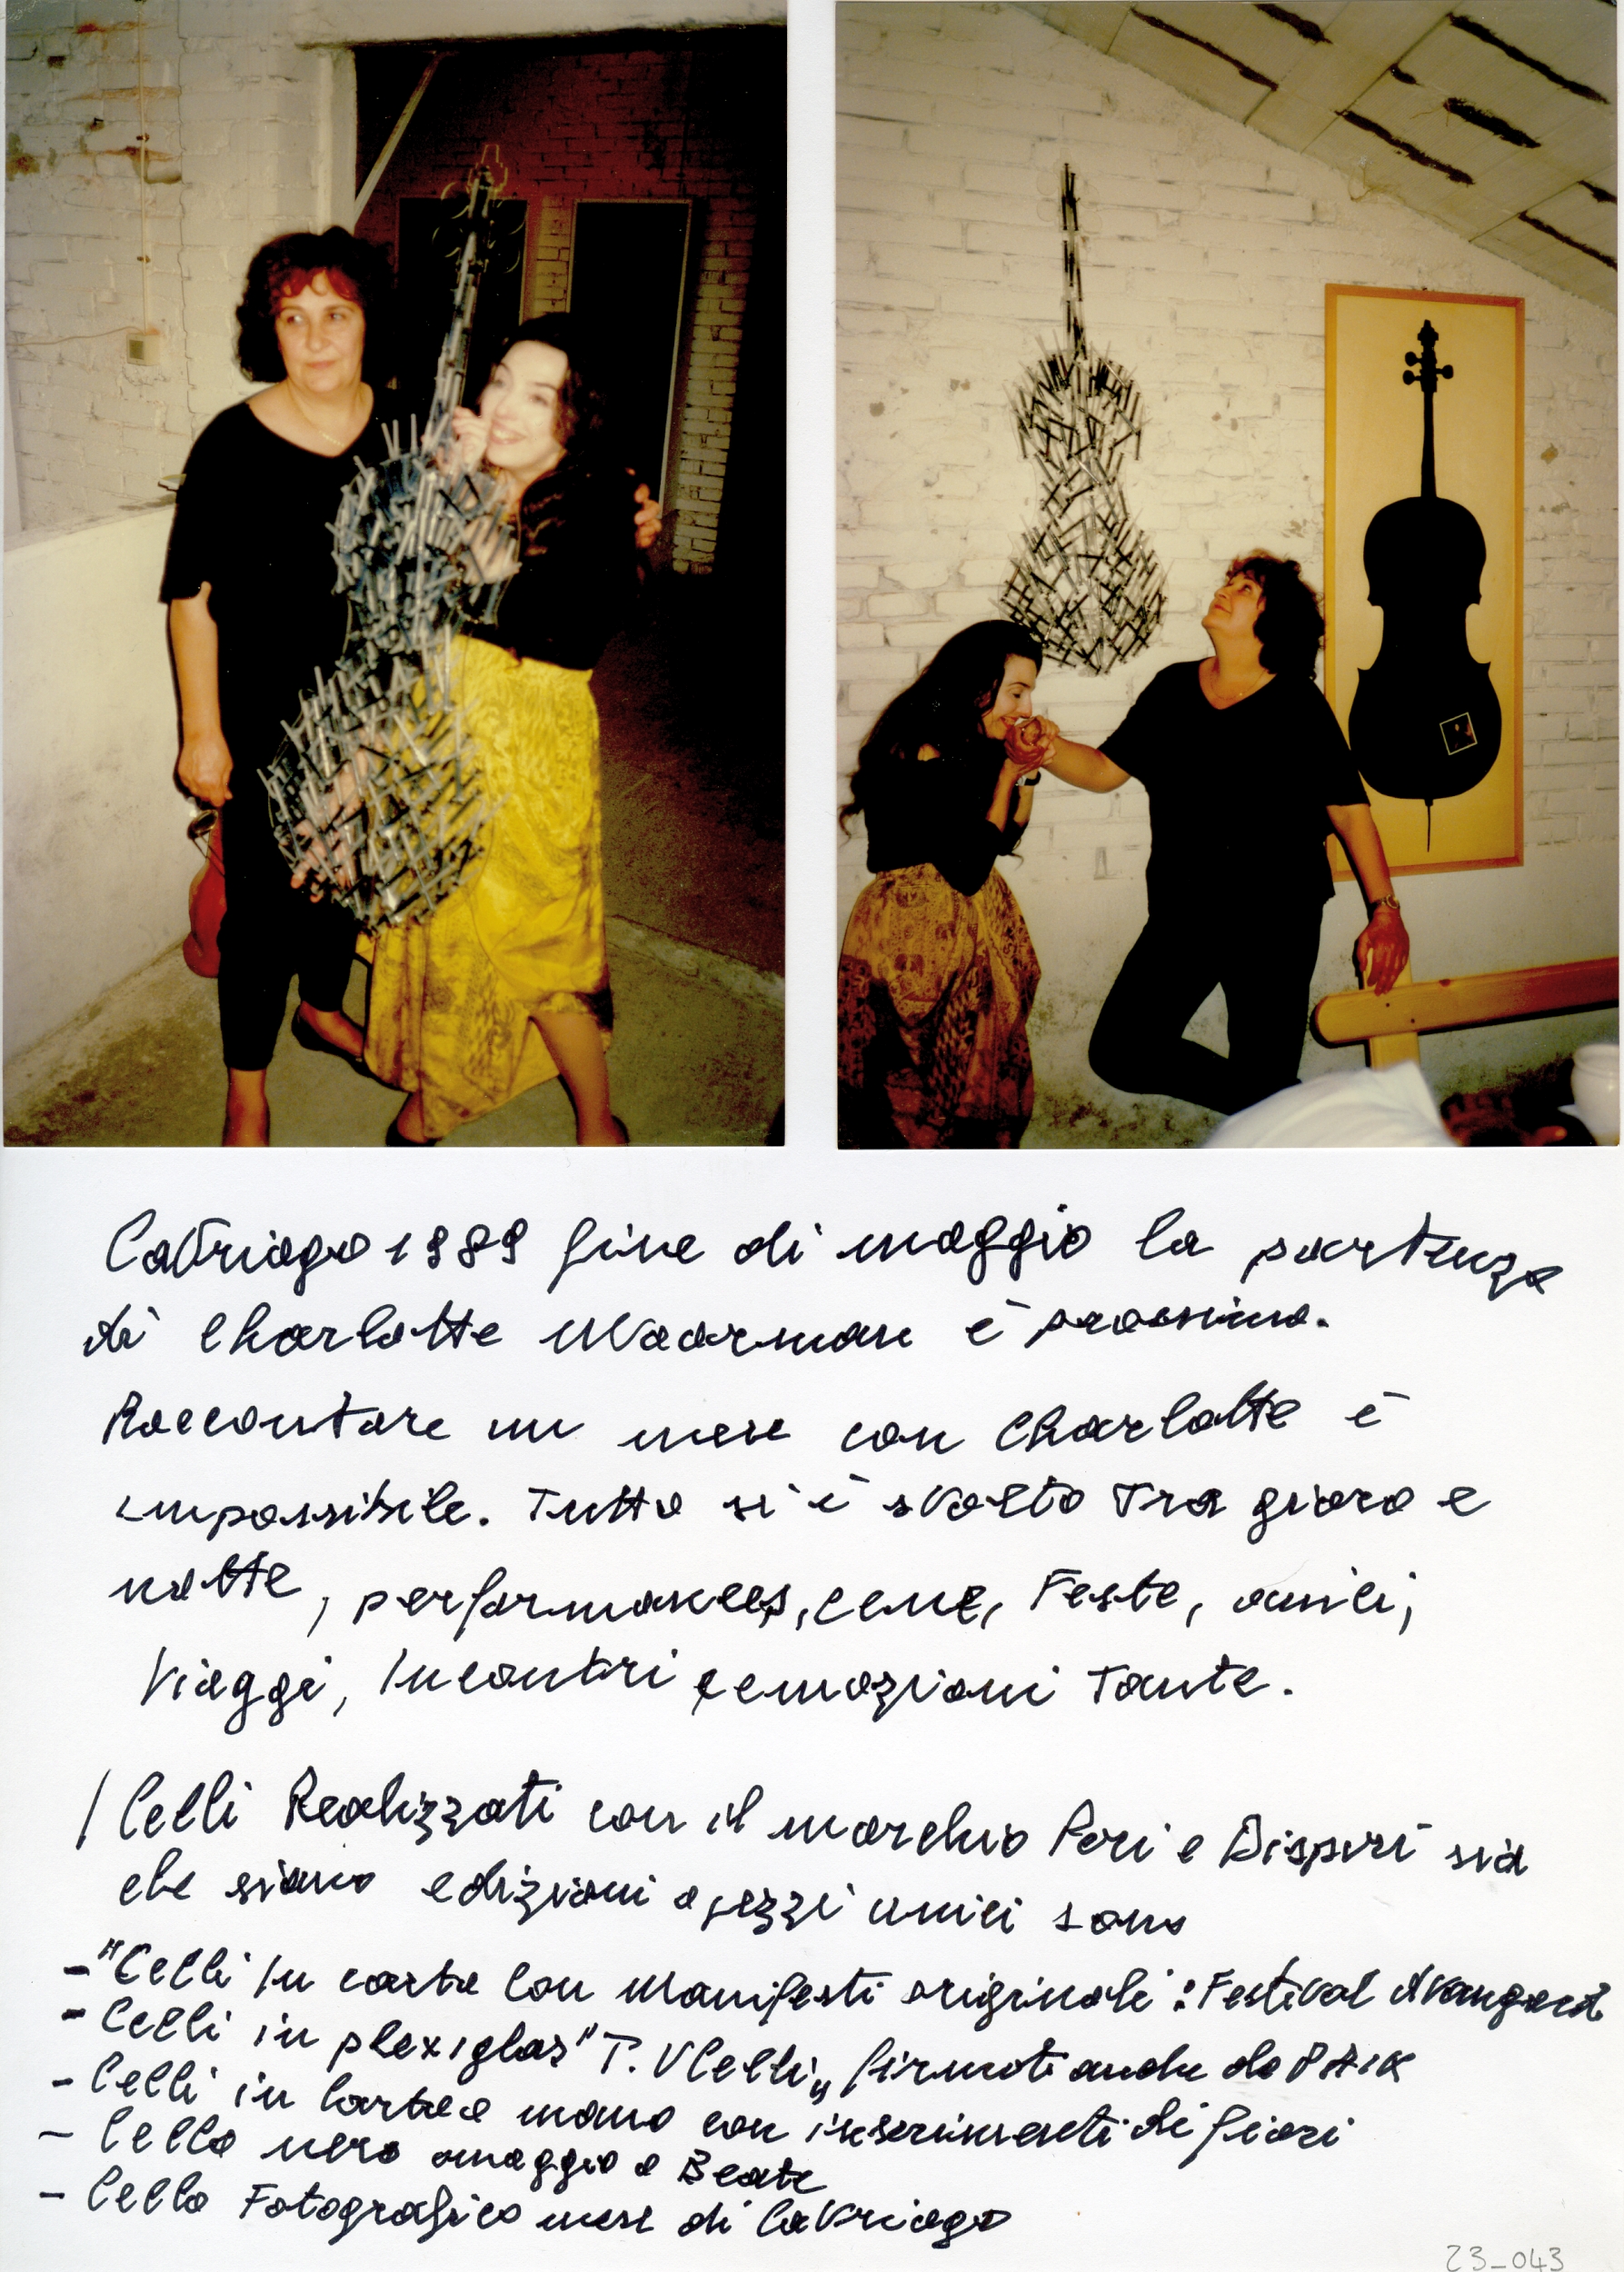 Cavriago 1989 fine di maggio la partenza
di Charlotte Moorman è prossima.
Raccontare un mese con Charlotte è
impossibile. Tutto si è svolto tra gioco e
notte, performances, cene, Feste, amici,
Viaggi, Incontri e emozioni Tante.
I Celli Realizzati con il marchio Pari e Dispari sia
che siano edizioni o pezzi unici sono
-"Celli In carta con manifesti originali: Festival Avangard
- Celli in plexiglas" T. VCelli" firmati anche da PAIK
- Celli in carta a mano con inserimenti di fiori
- Cello nero omaggio a Beate
- Cello Fotografico mese di Cavriago
23_043